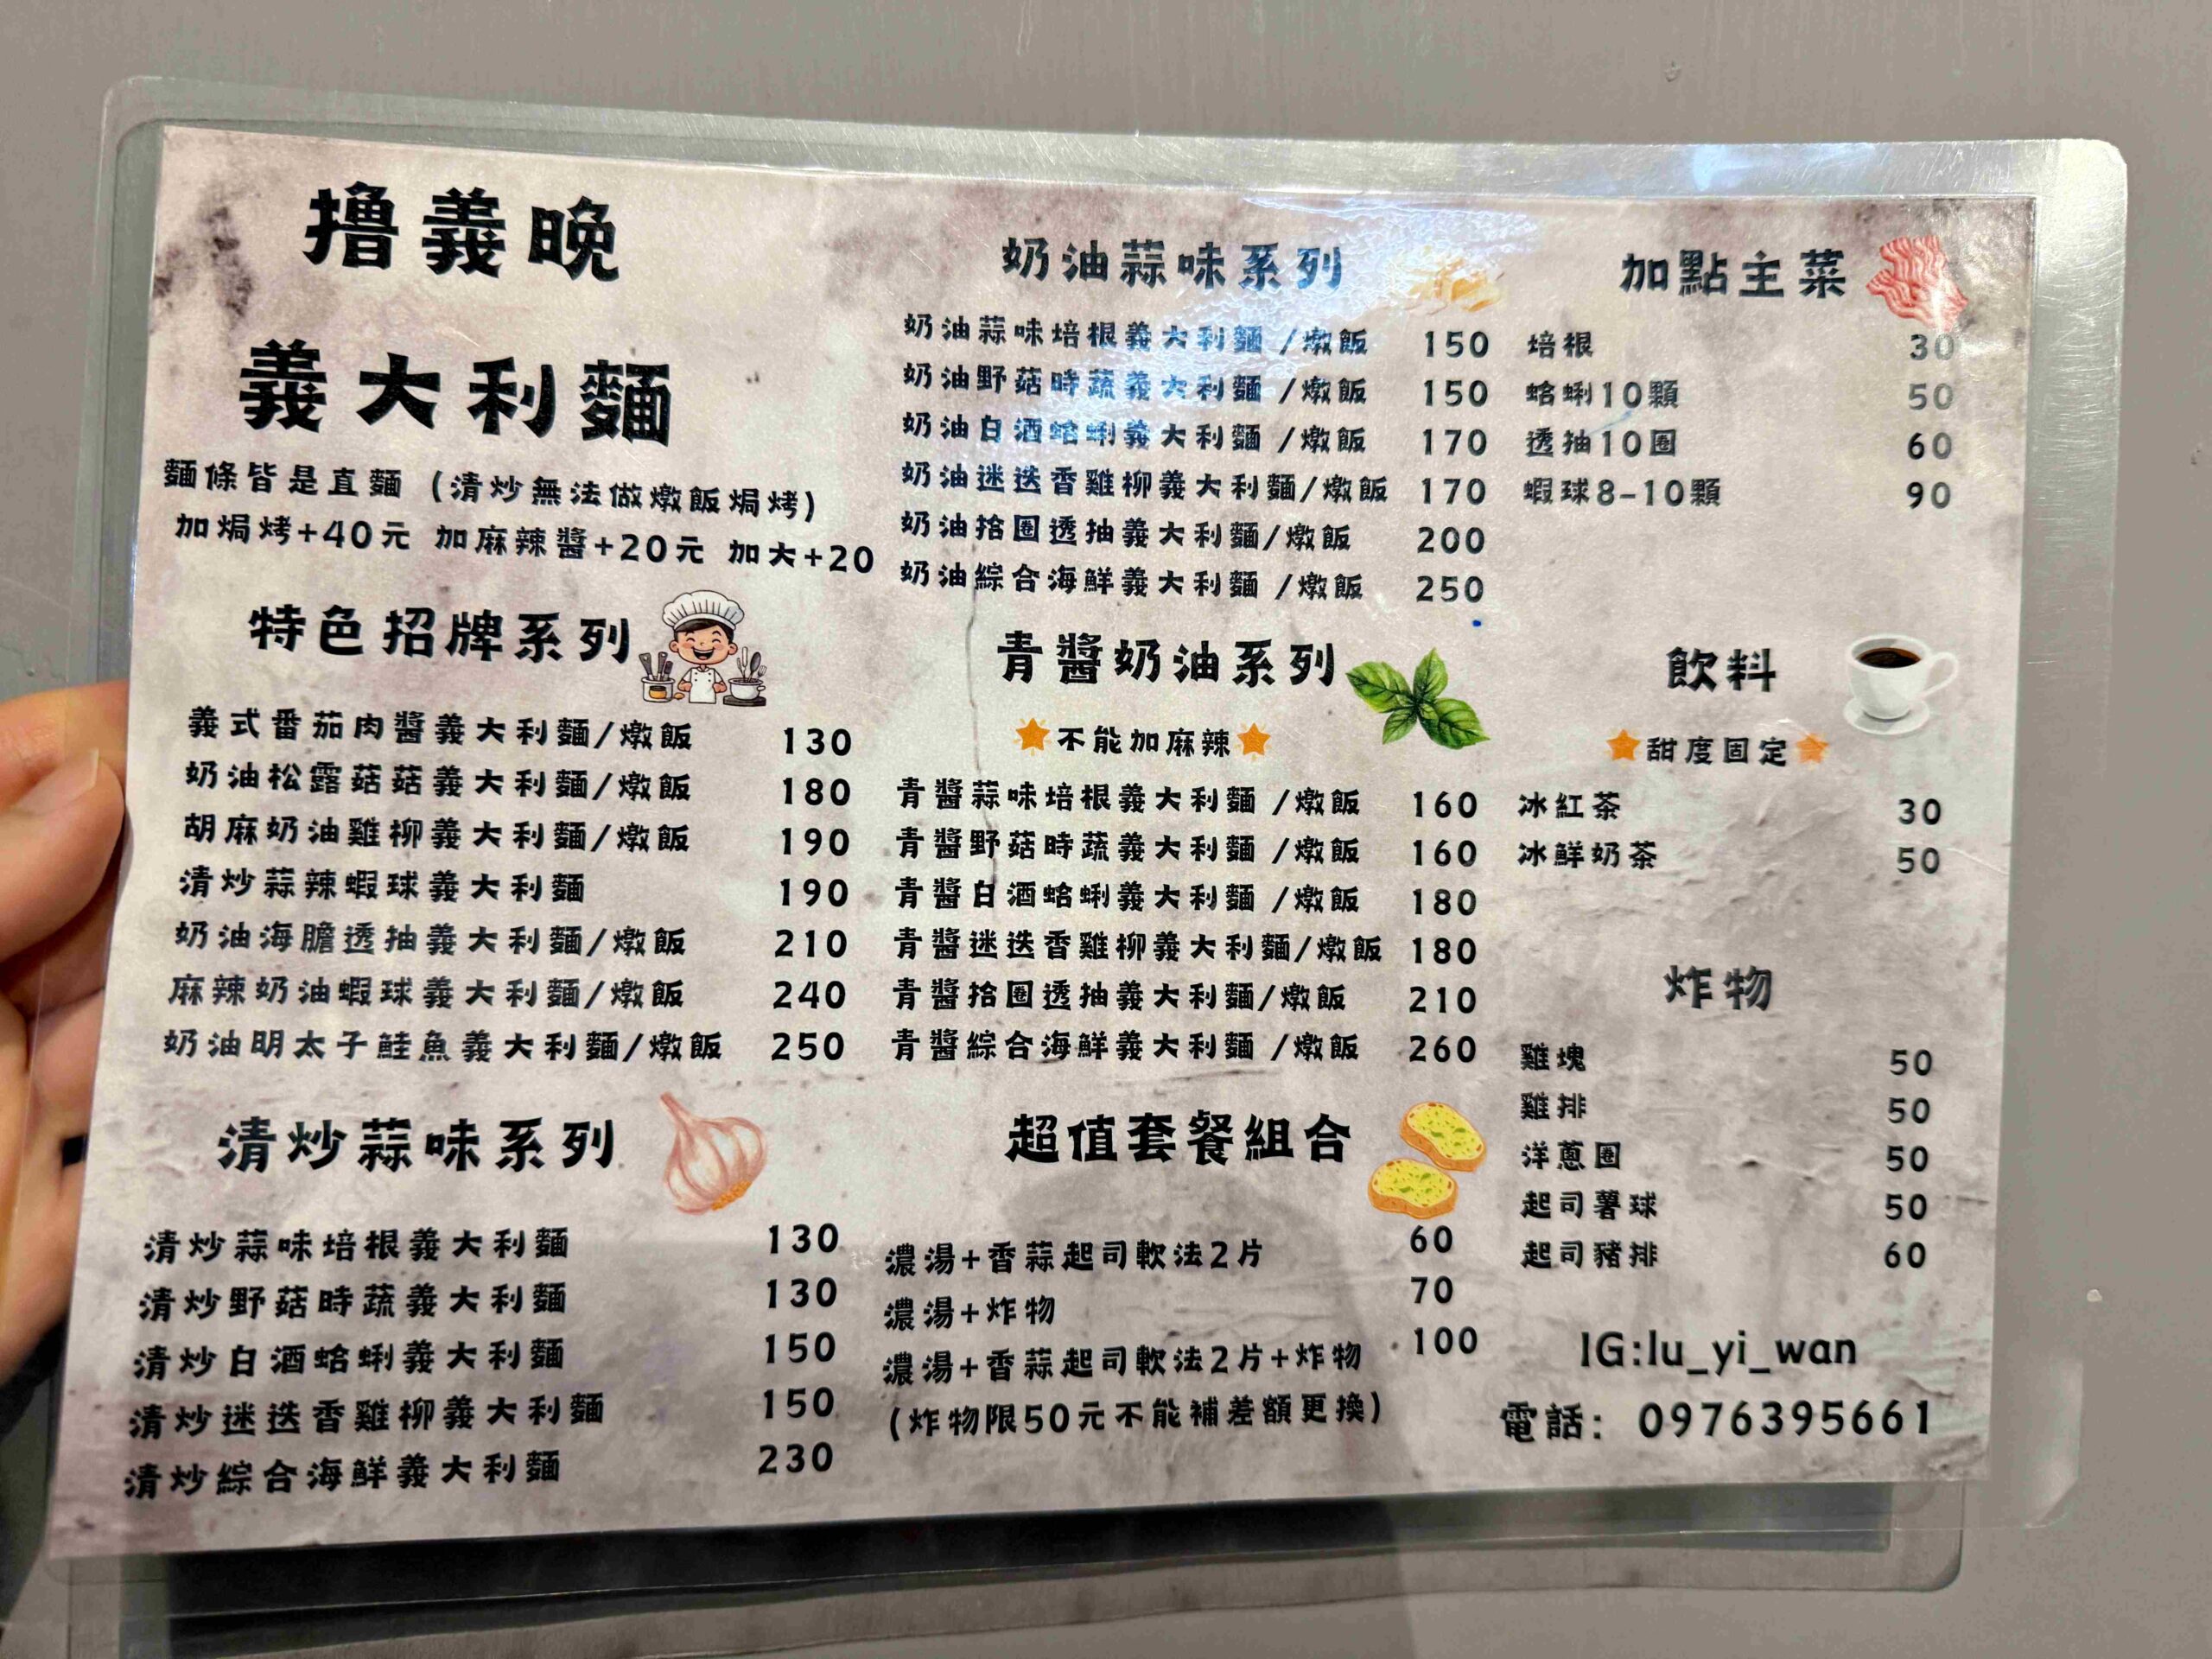 擼義晚
義大利麵
麵條皆是直麵 (清炒無法做燉飯焗烤)
加焗烤+40元 加麻辣醬+20元 加大+20
特色招牌系列
義式番茄肉醬義大利麵/燉飯 130
奶油松露菇菇義大利麵/燉飯 180
胡麻奶油雞柳義大利麵/燉飯 190
清炒蒜辣蝦球義大利麵 190
奶油海膽透抽義大利麵/燉飯 210
麻辣奶油蝦球義大利麵/燉飯 240
奶油明太子鮭魚義大利麵/燉飯 250
清炒蒜味系列
清炒蒜味培根義大利麵 130
清炒野菇時蔬義大利麵 130
清炒白酒蛤蜊義大利麵 150
清炒迷迭香雞柳義大利麵 150
清炒綜合海鮮義大利麵 230
奶油蒜味系列
奶油蒜味培根義大利麵 /燉飯 150
奶油野菇時蔬義大利麵 /燉飯 150
奶油白酒蛤蜊義大利麵 /燉飯 170
奶油迷迭香雞柳義大利麵/燉飯 170
奶油拾圈透抽義大利麵/燉飯 200
奶油綜合海鮮義大利麵 /燉飯 250
青醬奶油系列
不能加麻辣
青醬蒜味培根義大利麵 /燉飯 160
青醬野菇時蔬義大利麵 /燉飯 160
青醬白酒蛤蜊義大利麵 /燉飯 180
青醬迷迭香雞柳義大利麵/燉飯 180
青醬拾圈透抽義大利麵/燉飯 210
青醬綜合海鮮義大利麵 /燉飯 260
超值套餐組合
濃湯+香蒜起司軟法2片 60
濃湯+炸物 70
濃湯+香蒜起司軟法2片+炸物 100
(炸物限50元不能補差額更換)
加點主菜
培根 30
蛤蜊10顆 50
透抽10圈 60
蝦球8-10顆 90
飲料
甜度固定
冰紅茶 30
冰鮮奶茶 50
炸物
雞塊 50
雞排 50
洋蔥圈 50
起司薯球 50
起司豬排 60
IG:lu_yi_wan
電話: 0976395661